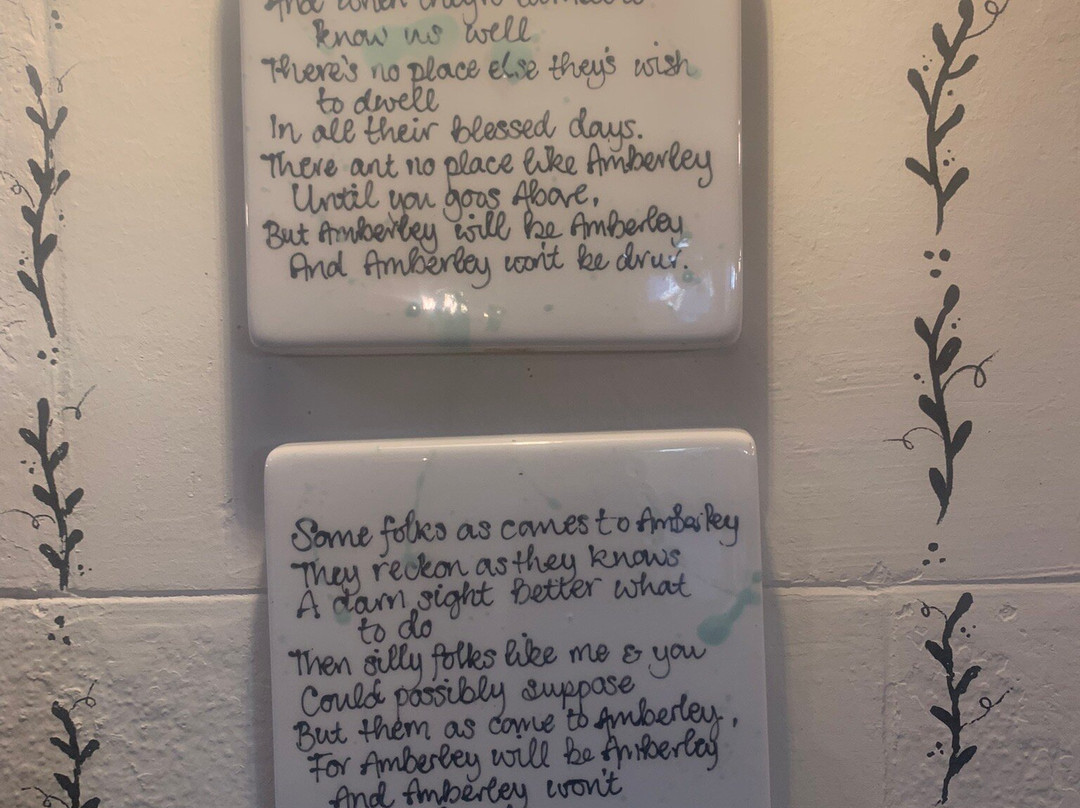 know us well
There's no place else they's wish
to dwell
In all their blessed days.
There ant no place like Amberley
Until you goos Above,
But Amberley will be Amberley
And Amberley won't be druv.
Some folks as comes to Amberley
They reckon as they knows
A darn sight better what
to do
Then silly folks like me & you
Could possibly suppose
But them as come to Amberley,
For Amberley will be Amberley
And Amberley won't